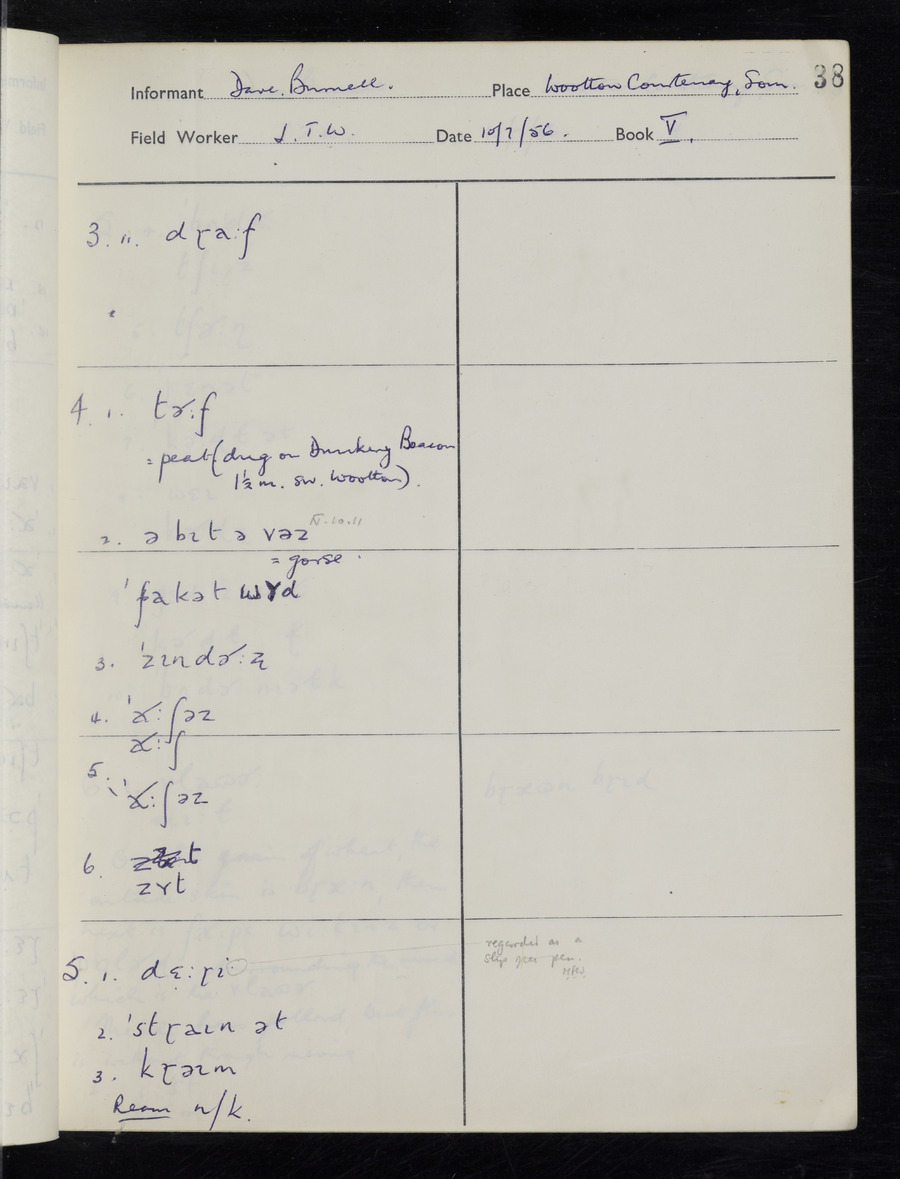 Informant Dave. Burnell. Place Wootton Courtenay, Som. 38
Field Worker J. T. W. Date 10/7/56. Book V.
3. 11. dɽa:f
4. 1. tɚ:f
= peat (dug on Dunkery Beacon
1½ m. SW. Wootton).
2. ə bɪt ə vəz IV.10.11
= gorse.
ˈfakət wɤd
3. ˈzɪndɚ:ʐ
4. ˈɚ:ʃəz
5. ɚ:ʃ
ˈɚ:ʃəz
6.
zɤt
5. 1. dɛ̣:ɽi
regarded as a
slip of the pen.
2. ˈstɽaɪn ət
3. kɽəɪm
Ream n/k.